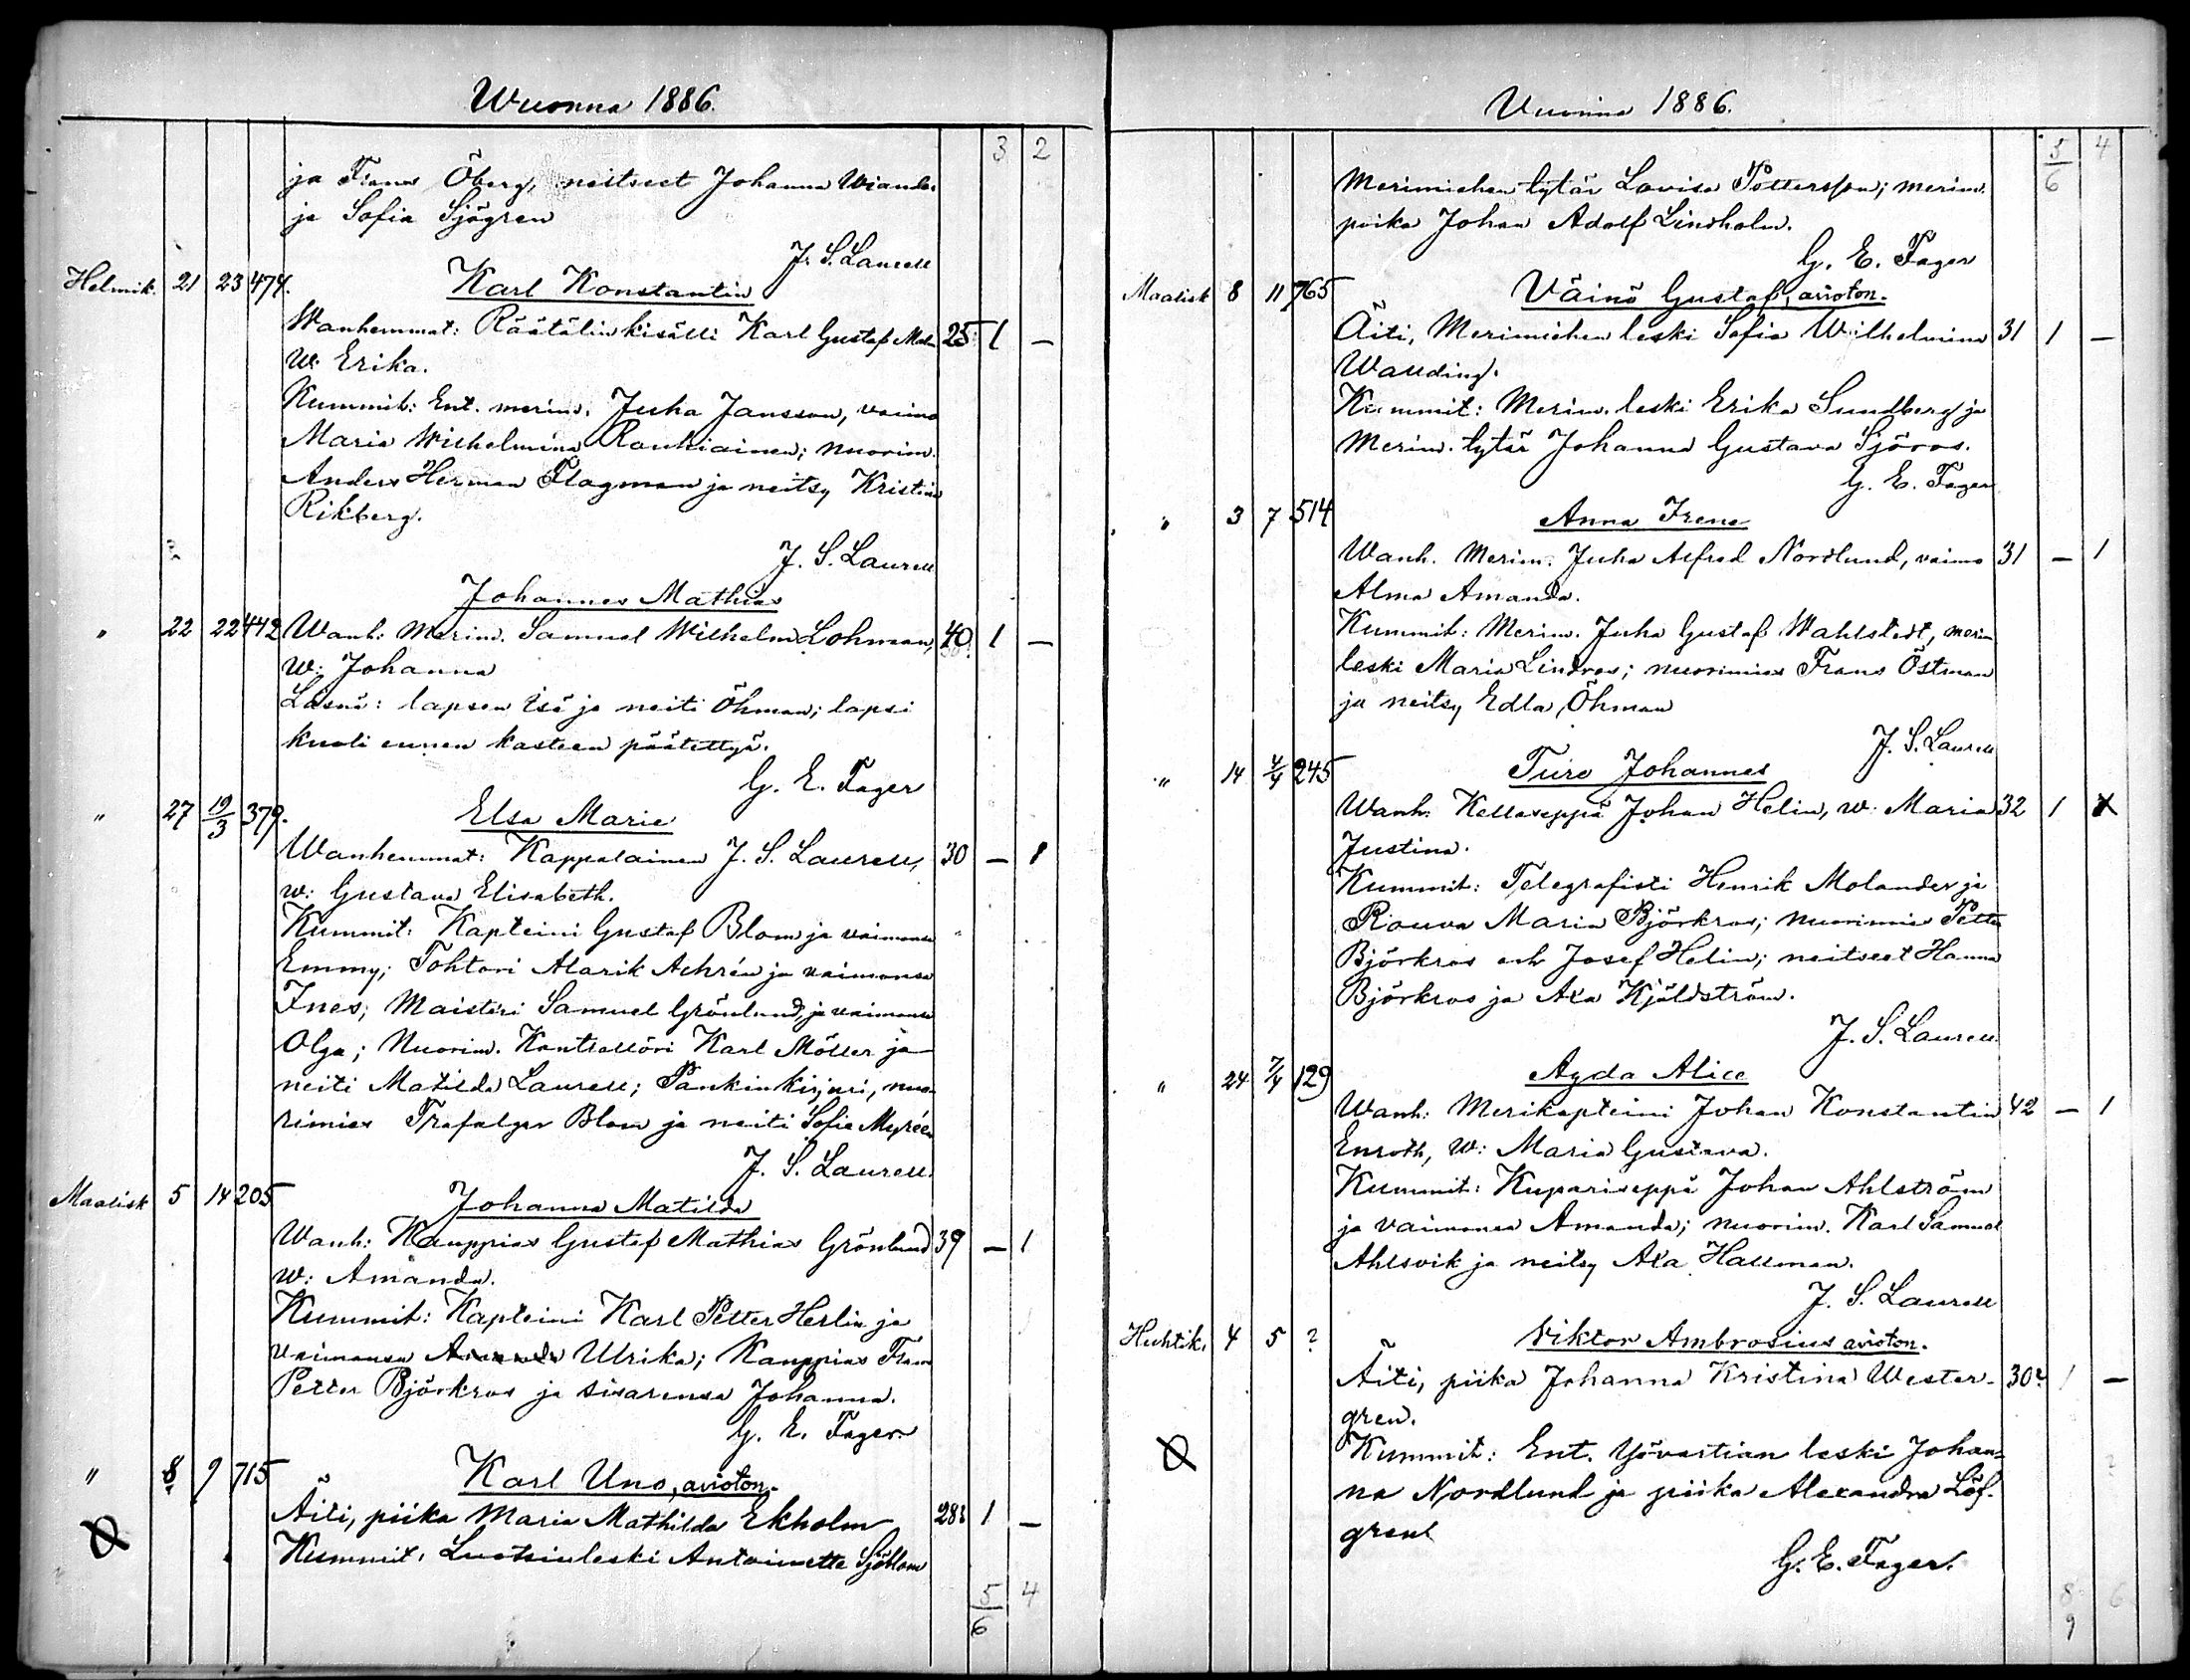 Wuonna 1886.
3 2
ja Frans Öberg, neitseet Johanna Wiander
ja Sofia Sjögren
J. S. Laurell
Helmik. 21 23 474. Karl Konstantin
Wanhemmat: Räätälinkisälli Karl Gustaf Malm 25 1 —
W: Erika.
Kummit: Ent. merim. Juha Jansson, vaimo
Maria Wilhelmina Raukiainen; nuorim.
Anders Herman Flagman ja neitsy Kristina
Rikberg.
J. S. Laurell
Johannes Mathias
" 22 22 442 Wanh: Merim. Samuel Wilhelm Lohman, 40 1 —
W: Johanna
Läsnä: lapsen isä ja neiti Öhman; lapsi
kuoli ennen kasteen päätettyä.
G. E. Fager
" 27 19/3 379. Elsa Marie
Wanhemmat: Kappalainen J. S. Laurell, 30 — 1
w: Gustava Elisabeth.
Kummit: Kapteini Gustaf Blom ja vaimonsa
Emmy; Tohtori Alarik Achrén ja vaimonsa
Ines; Maisteri Samuel Grönlund, ja vaimonsa
Olga; Nuorim. Kontrollöri Karl Möller ja
neiti Matilda Laurell; Pankinkirjuri, nuo-
rimies Trafalgar Blom ja neiti Sofie Myréen
J. S. Laurell.
Maalisk 5 14 205 Johanna Matilda
Wanh: Kauppias Gustaf Mathias Grönlund 39 — 1
W: Amanda.
Kummit: Kapteini Karl Petter Herlin ja
vaimonsa Amanda Ulrika; Kauppias Frans
Petter Björkros ja sisarensa Johanna.
G. E. Fager.
" 8 9 715 Karl Uno, avioton.
Äiti, piika Maria Mathilda Ekholm 28 1 —
Kummit, Luotsinleski Antoinette Sjöblom
5 4
6
Vuonna 1886.
5 4
6
Merimiehen tytär Lovisa Pettersson; merim.
poika Johan Adolf Lindholm.
G. E. Fager
Maalisk 8 11 765 Väinö Gustaf, avioton.
Äiti, Merimiehen leski Sofia Wilhelmina 31 1 —
Walldin.
Kummit: Merim. leski Erika Sundberg ja
Merim. tytär Johanna Gustava Sjöros.
G. E. Fager
" 3 7 514 Anna Irene
Wanh. Merim. Juha Alfred Nordlund, vaimo 31 — 1
Alma Amanda.
Kummit: Merim. Juha Gustaf Wahlstedt, merim
leski Maria Lindros; nuorimies Frans Östman
ja neitsy Edla Öhman
J. S. Laurell
" 14 4/4 245 Ture Johannes
Wanh: Kelloseppä Johan Helin, w: Maria 32 1
Justina.
Kummit: Telegrafisti Henrik Molander ja
Rouva Maria Björkros; nuorimies Petter
Björkros och Josef Helin; neitseet Hanna
Björkros ja Axa Kjäldström.
J. S. Laurell.
" 24 7/4 129 Agda Alice
Wanh: Merikapteini Johan Konstantin 42 — 1
Enroth, W: Maria Gustava.
Kummit: Kupariseppä Johan Ahlström
ja vaimonsa Amanda; nuorim. Karl Samuel
Ahlsvik ja neitsy Axa Hallman.
J. S. Laurell
Huhtik. 4 5 ? Viktor Ambrosius avioton.
Äiti, piika Johanna Kristina Wester- 30? 1 —
gren.
Kummit: Ent. Yövartian leski Johan-
na Nordlund ja piika Alexandra Löf-
gren
G. E. Fager.
8 6
9